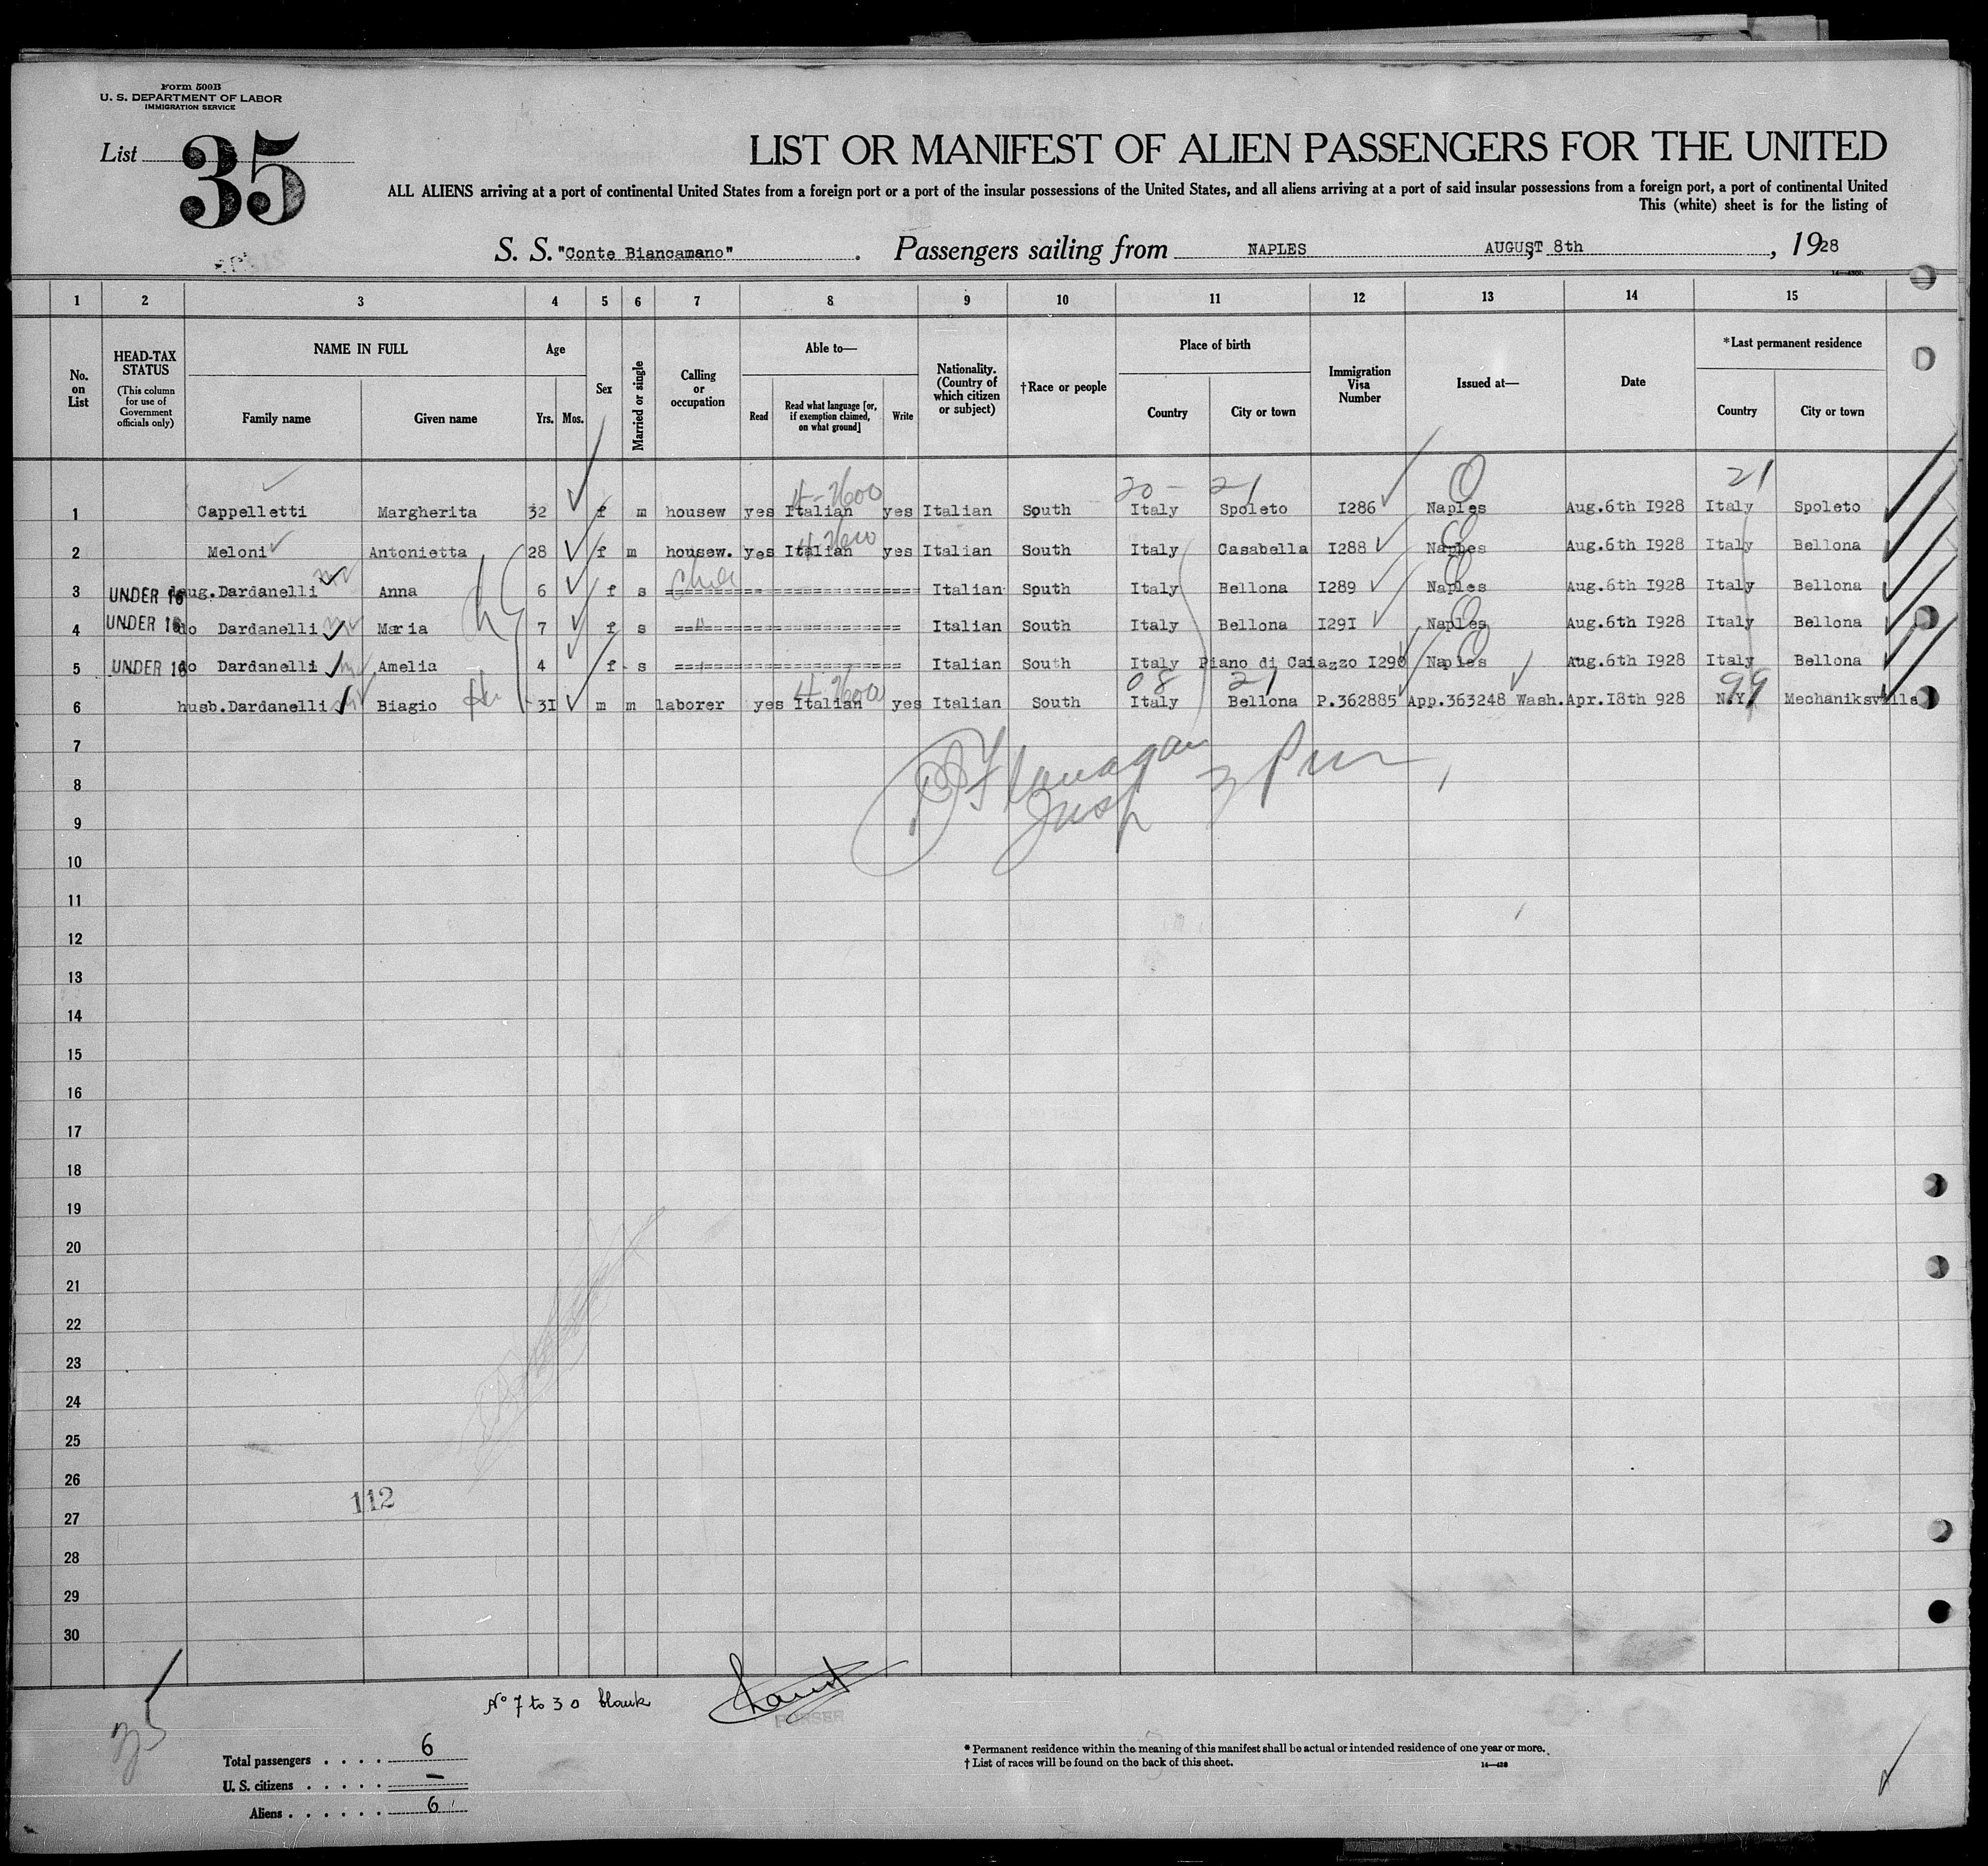 Form 500B
U. S. DEPARTMENT OF LABOR
IMMIGRATION SERVICE
List 35
LIST OR MANIFEST OF ALIEN PASSENGERS FOR THE UNITED
ALL ALIENS arriving at a port of continental United States from a foreign port or a port of the insular possessions of the United States, and all aliens arriving at a port of said insular possessions from a foreign port, a port of continental United
This (white) sheet is for the listing of
S. S. "Conte Biancamano" . Passengers sailing from NAPLES , AUGUST 8th , 1928
1 2 3 4 5 6 7 8 9 10 11 12 13 14 15
No. on List
HEAD-TAX STATUS (This column for use of Government officials only)
NAME IN FULL Family name Given name
Age Yrs. Mos.
Sex
Married or single
Calling or occupation
Able to— Read Read what language [or, if exemption claimed, on what ground] Write
Nationality. (Country of which citizen or subject)
†Race or people
Place of birth Country City or town
Immigration Visa Number
Issued at—
Date
*Last permanent residence Country City or town
4-2600 20 - 21 21
1 Cappelletti Margherita 32 f m housew yes Italian yes Italian South Italy Spoleto I286 Naples Aug.6th I928 Italy Spoleto
4-2600
2 Meloni Antonietta 28 f m housew. yes Italian yes Italian South Italy Casabella I288 Naples Aug.6th I928 Italy Bellona
3 UNDER 16 daug. Dardanelli Anna 6 f s Child Italian South Italy Bellona I289 Naples Aug.6th I928 Italy Bellona
4 UNDER 16 do Dardanelli Maria 7 f s " Italian South Italy Bellona I29I Naples Aug.6th I928 Italy Bellona
5 UNDER 16 do Dardanelli Amelia 4 f s Italian South Italy Piano di Caiazzo I290 Naples Aug.6th I928 Italy Bellona
4-2600 08 21 99
6 husb.Dardanelli Biagio 3I m m laborer yes Italian yes Italian South Italy Bellona P.362885 App.363248 Wash. Apr.I8th 928 N.Y. Mechaniksville
7
Flanagan
8
Insp
9
10
11
12
13
14
15
16
17
18
19
20
21
22
23
24
25
26
112
27
28
29
30
No 7 to 30 blank
PURSER
35
Total passengers . . . . 6
U. S. citizens . . . . . –
Aliens . . . . . . 6
* Permanent residence within the meaning of this manifest shall be actual or intended residence of one year or more.
† List of races will be found on the back of this sheet.